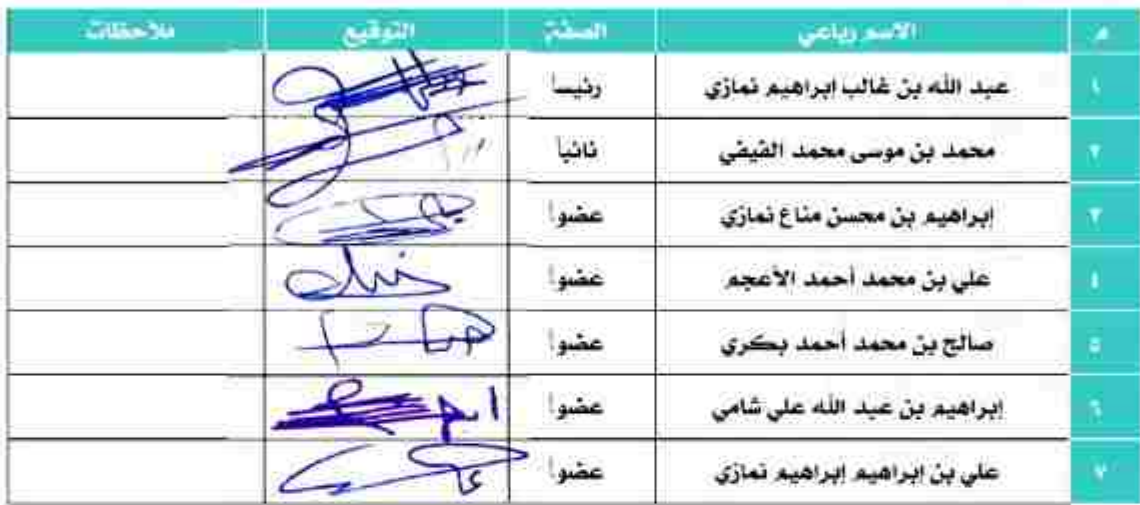 م الاسم رباعي الصفة التوقيع ملاحظات
١ عبد الله بن غالب إبراهيم نمازي رئيسا
٢ محمد بن موسى محمد الفيفي نائبا
٣ إبراهيم بن محسن مناع نمازي عضوا
٤ علي بن محمد أحمد الأعجم عضوا
٥ صالح بن محمد أحمد بكري عضوا
٦ إبراهيم بن عبد الله علي شامي عضوا
٧ علي بن إبراهيم إبراهيم نمازي عضوا